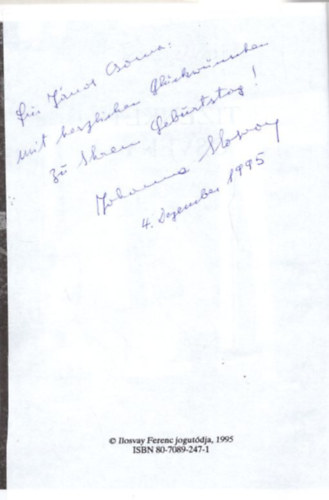 Für János Csoma:
mit herzlichen Glückwünschen
zu Ihrem Geburtstag!
Johanna Ilosvay
4. Dezember 1995
© Ilosvay Ferenc jogutódja, 1995
ISBN 80-7089-247-1